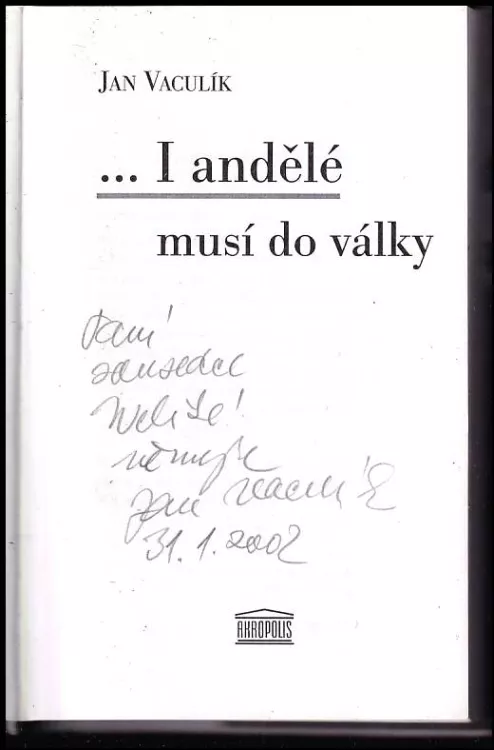 JAN VACULÍK
... I andělé
musí do války
Paní
sousedce
věnuje
Jan Vaculík
31.1.2002
AKROPOLIS